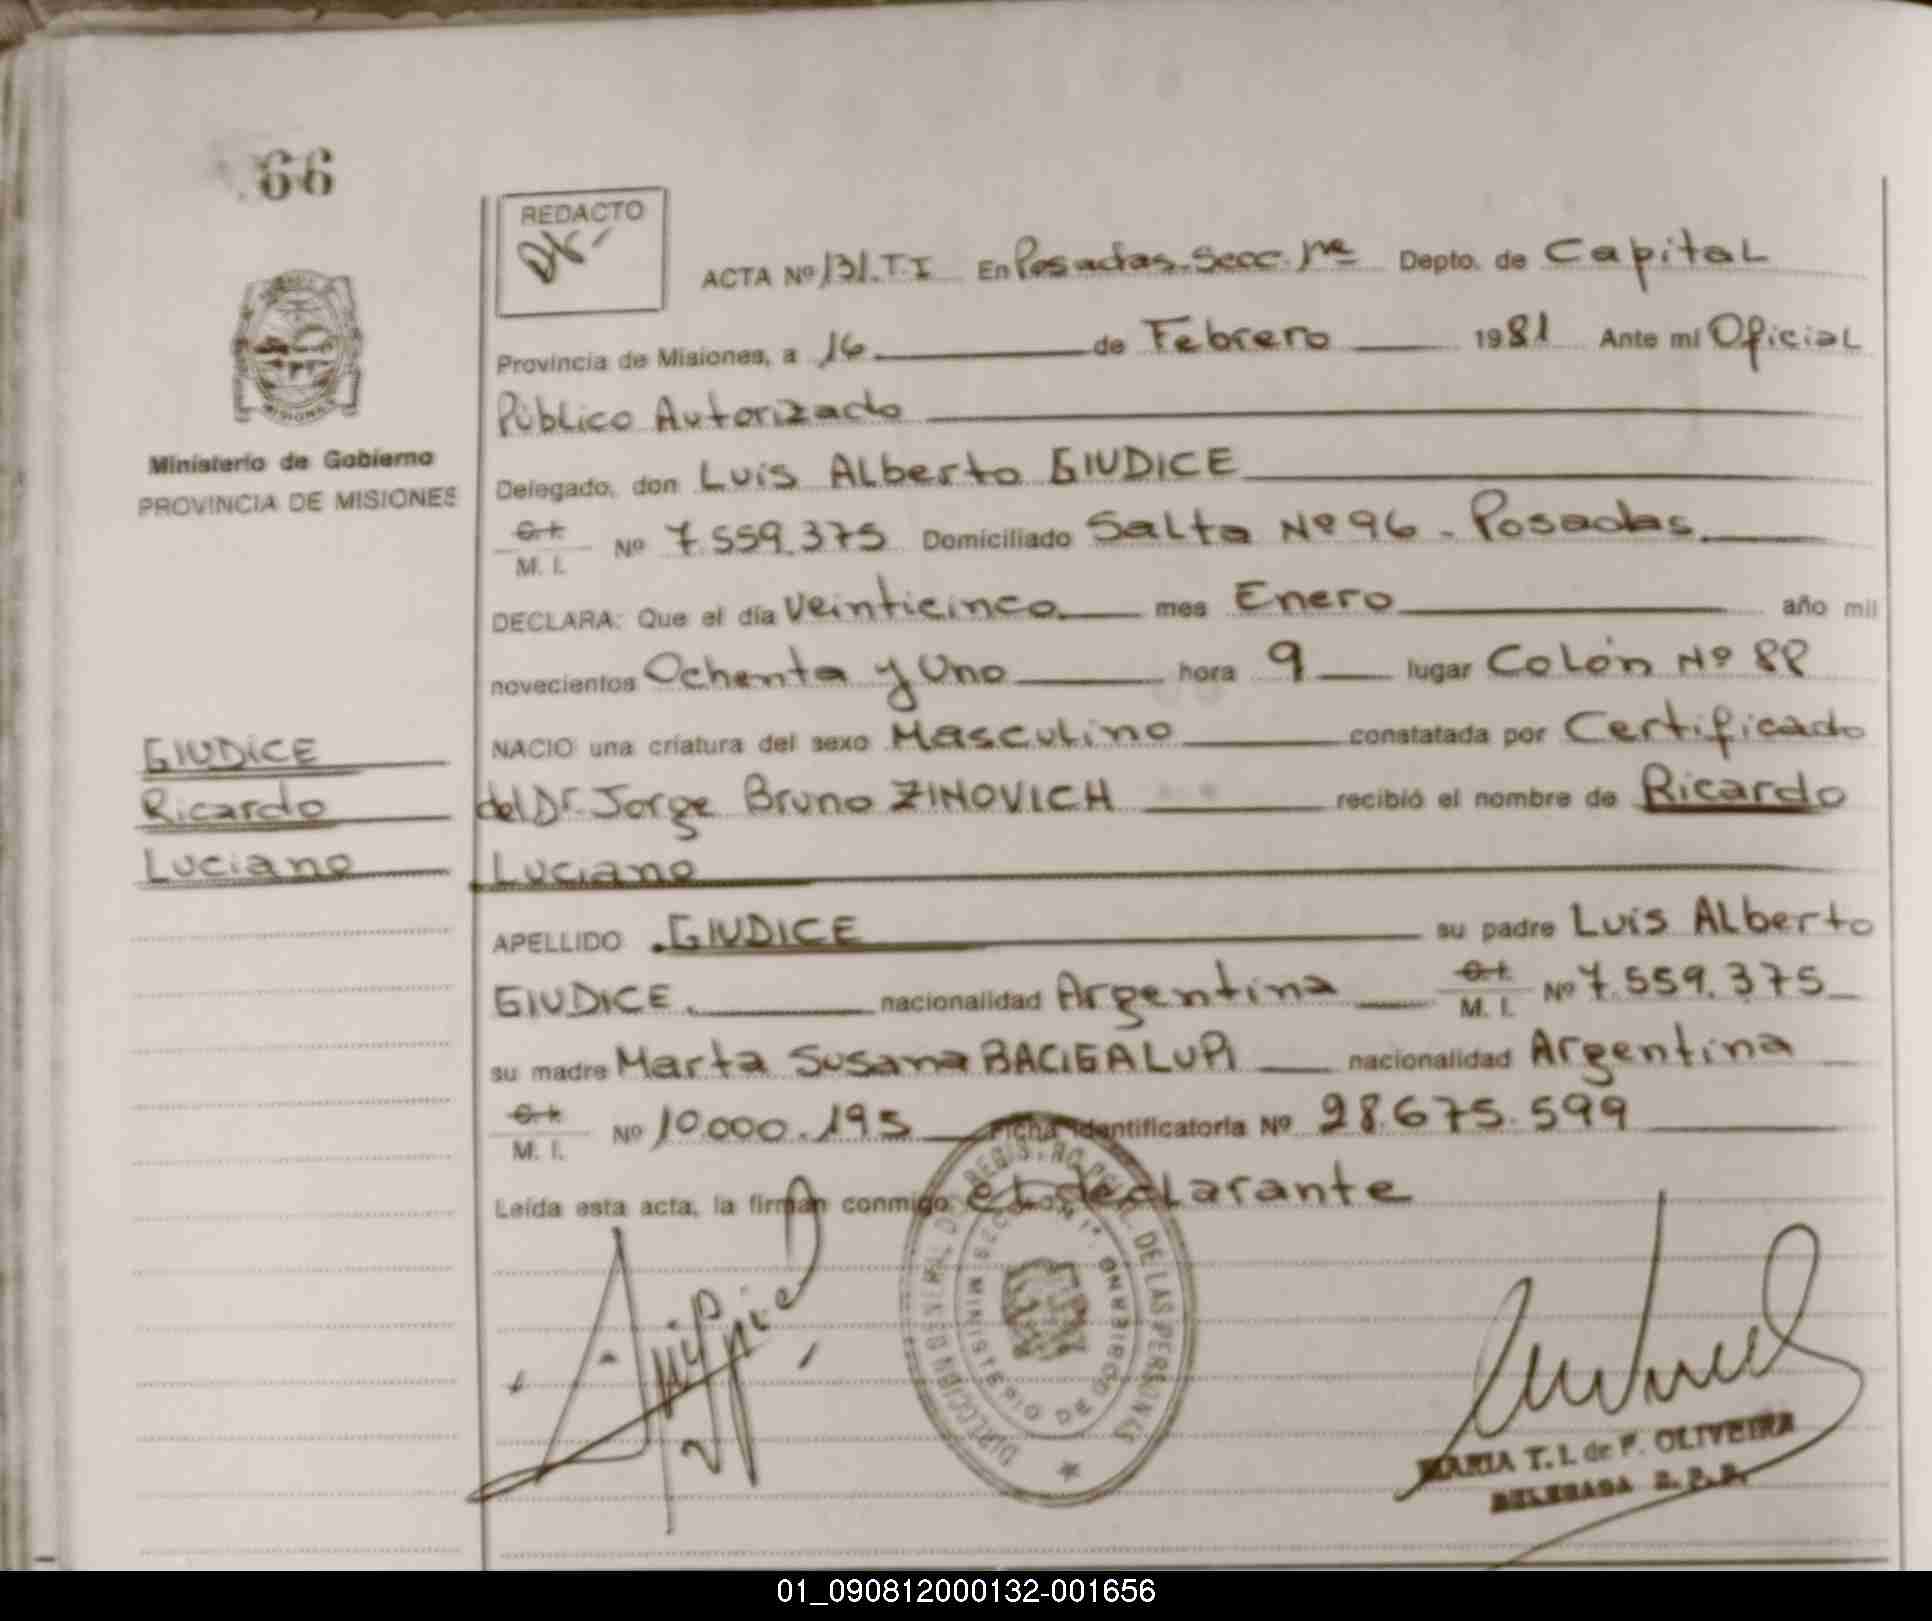 66
REDACTO
ACTA Nº 131.T.I En Posadas.Secc.1ra Depto. de Capital
Provincia de Misiones, a 16 de Febrero 1981 Ante mí Oficial
Público Autorizado
Ministerio de Gobierno
PROVINCIA DE MISIONES
Delegado, don Luis Alberto GIUDICE
C.I.
M. I. Nº 7.559.375 Domiciliado Salta Nº 96 - Posadas
DECLARA: Que el día veinticinco mes Enero año mil
novecientos Ochenta y Uno hora 9 lugar Colón Nº 88
NACIO una criatura del sexo Masculino constatada por Certificado
del Dr. Jorge Bruno ZINOVICH recibió el nombre de Ricardo
Luciano
GIUDICE
Ricardo
Luciano
APELLIDO GIUDICE su padre Luis Alberto
GIUDICE. nacionalidad Argentina C.I.
M. I. Nº 7.559.375
su madre Marta Susana BACIGALUPI nacionalidad Argentina
C.I.
M. I. Nº 10.000.195 Ficha Identificatoria Nº 28.675.599
Leída esta acta, la firman conmigo el declarante
DIRECCIÓN GENERAL DEL REGISTRO PCIAL. DE LAS PERSONAS
MINISTERIO DE GOBIERNO
MARIA T. I. de F. OLIVEIRA
DELEGADA R. P. P.
01_090812000132-001656